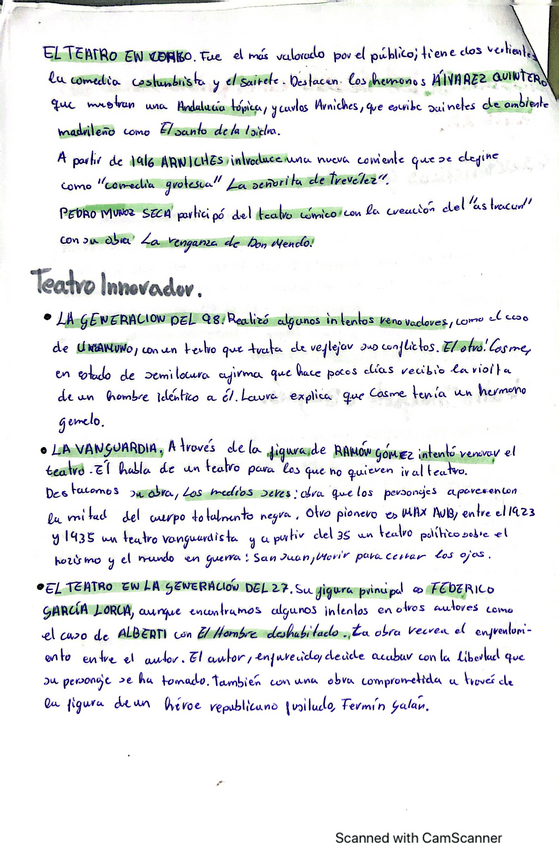 EL TEATRO EN VERSO. Fue el más valorado por el público; tiene dos vertientes
la comedia costumbrista y el sainete. Destacan los hermanos ÁLVAREZ QUINTERO
que muestran una Andalucía tópica, y Carlos Arniches, que escribe sainetes de ambiente
madrileño como El santo de la Isidra.
A partir de 1916 ARNICHES introduce una nueva corriente que se define
como "comedia grotesca" La señorita de Trevélez".
PEDRO MUÑOZ SECA participó del teatro cómico con la creación del "astracan"
con su obra' La venganza de Don Mendo.'
Teatro Innovador.
• LA GENERACION DEL 98. Realizó algunos intentos renovadores, como el caso
de UNAMUNO, con un teatro que trata de reflejar sus conflictos. El otro! Cosme,
en estado de semilocura afirma que hace pocos días recibio la visita
de un hombre idéntico a él. Laura explica que Cosme tenía un hermano
gemelo.
• LA VANGUARDIA, A través de la figura de RAMÓN GÓMEZ intentó renovar el
teatro. Él habla de un teatro para los que no quieren ir al teatro.
Destacamos su obra, Los medios seres: obra que los personajes aparecen con
la mitad del cuerpo totalmente negra. Otro pionero es MAX AUB, entre el 1923
y 1935 un teatro vanguardista y a partir del 35 un teatro político sobre el
nazismo y el mundo en guerra: San Juan, Morir para cerrar los ojos.
• EL TEATRO EN LA GENERACIÓN DEL 27. Su figura principal es FEDERICO
GARCÍA LORCA, aunque encontramos algunos intentos en otros autores como
el caso de ALBERTI con El Hombre deshabitado. La obra recrea el enfrentami-
ento entre el autor. El autor, enfurecido, decide acabar con la libertad que
su personaje se ha tomado. También con una obra comprometida a través de
la figura de un héroe republicano fusilado, Fermín Galán.
Scanned with CamScanner